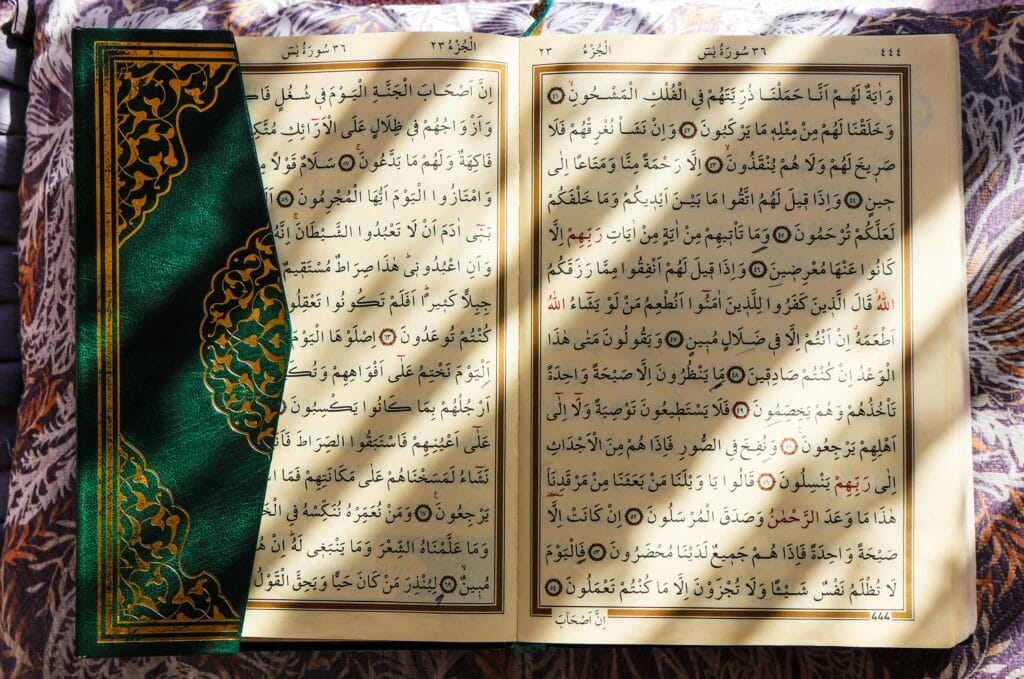 ٤٤٤ ٣٦ سُورَةُ يٰسٓ اَلْجُزْءُ ٢٣
وَاٰيَةٌ لَهُمْ اَنَّا حَمَلْنَا ذُرِّيَّتَهُمْ فِي الْفُلْكِ الْمَشْحُونِۙ ﴿٤١﴾
وَخَلَقْنَا لَهُمْ مِنْ مِثْلِه۪ مَا يَرْكَبُونَ ﴿٤٢﴾ وَاِنْ نَشَأْ نُغْرِقْهُمْ فَلَا
صَر۪يخَ لَهُمْ وَلَا هُمْ يُنْقَذُونَۙ ﴿٤٣﴾ اِلَّا رَحْمَةً مِنَّا وَمَتَاعًا اِلٰى
ح۪ينٍ ﴿٤٤﴾ وَاِذَا ق۪يلَ لَهُمُ اتَّقُوا مَا بَيْنَ اَيْد۪يكُمْ وَمَا خَلْفَكُمْ
لَعَلَّكُمْ تُرْحَمُونَ ﴿٤٥﴾ وَمَا تَأْت۪يهِمْ مِنْ اٰيَةٍ مِنْ اٰيَاتِ رَبِّهِمْ اِلَّا
كَانُوا عَنْهَا مُعْرِض۪ينَ ﴿٤٦﴾ وَاِذَا ق۪يلَ لَهُمْ اَنْفِقُوا مِمَّا رَزَقَكُمُ
اللّٰهُۙ قَالَ الَّذ۪ينَ كَفَرُوا لِلَّذ۪ينَ اٰمَنُٓوا اَنُطْعِمُ مَنْ لَوْ يَشَٓاءُ اللّٰهُ
اَطْعَمَهُۗ اِنْ اَنْتُمْ اِلَّا ف۪ي ضَلَالٍ مُب۪ينٍ ﴿٤٧﴾ وَيَقُولُونَ مَتٰى هٰذَا
الْوَعْدُ اِنْ كُنْتُمْ صَادِق۪ينَ ﴿٤٨﴾ مَا يَنْظُرُونَ اِلَّا صَيْحَةً وَاحِدَةً
تَأْخُذُهُمْ وَهُمْ يَخِصِّمُونَ ﴿٤٩﴾ فَلَا يَسْتَط۪يعُونَ تَوْصِيَةً وَلَٓا اِلٰٓى
اَهْلِهِمْ يَرْجِعُونَ۟ ﴿٥٠﴾ وَنُفِخَ فِي الصُّورِ فَاِذَا هُمْ مِنَ الْاَجْدَاثِ
اِلٰى رَبِّهِمْ يَنْسِلُونَ ﴿٥١﴾ قَالُوا يَا وَيْلَنَا مَنْ بَعَثَنَا مِنْ مَرْقَدِنَاۢ
هٰذَا مَا وَعَدَ الرَّحْمٰنُ وَصَدَقَ الْمُرْسَلُونَ ﴿٥٢﴾ اِنْ كَانَتْ اِلَّا
صَيْحَةً وَاحِدَةً فَاِذَا هُمْ جَم۪يعٌ لَدَيْنَا مُحْضَرُونَ ﴿٥٣﴾ فَالْيَوْمَ
لَا تُظْلَمُ نَفْسٌ شَيْـًٔا وَلَا تُجْزَوْنَ اِلَّا مَا كُنْتُمْ تَعْمَلُونَ ﴿٥٤﴾
444
اِنَّ اَصْحَابَ
اَلْجُزْءُ ٢٣ ٣٦ سُورَةُ يٰسٓ
اِنَّ اَصْحَابَ الْجَنَّةِ الْيَوْمَ ف۪ي شُغُلٍ
وَاَزْوَاجُهُمْ ف۪ي ظِلَالٍ عَلَى الْاَرَٓائِكِ
فَاكِهَةٌ وَلَهُمْ مَا يَدَّعُونَۚ ﴿٥٧﴾ سَلَامٌ قَوْلًا
وَامْتَازُوا الْيَوْمَ اَيُّهَا الْمُجْرِمُونَ ﴿٥٩﴾
بَن۪ٓي اٰدَمَ اَنْ لَا تَعْبُدُوا الشَّيْطَانَۚ اِنَّهُ
وَاَنِ اعْبُدُون۪يۜ هٰذَا صِرَاطٌ مُسْتَق۪يمٌ
جِبِلًّا كَث۪يرًاۜ اَفَلَمْ تَكُونُوا تَعْقِلُونَ
كُنْتُمْ تُوعَدُونَ ﴿٦٣﴾ اِصْلَوْهَا الْيَوْمَ
اَلْيَوْمَ نَخْتِمُ عَلٰٓى اَفْوَاهِهِمْ
اَرْجُلُهُمْ بِمَا كَانُوا يَكْسِبُونَ
عَلٰٓى اَعْيُنِهِمْ فَاسْتَبَقُوا الصِّرَاطَ
نَشَٓاءُ لَمَسَخْنَاهُمْ عَلٰى مَكَانَتِهِمْ فَمَا
يَرْجِعُونَ۟ ﴿٦٧﴾ وَمَنْ نُعَمِّرْهُ نُنَكِّسْهُ فِي
وَمَا عَلَّمْنَاهُ الشِّعْرَ وَمَا يَنْبَغ۪ي لَهُۜ اِنْ
مُب۪ينٌۙ ﴿٦٩﴾ لِيُنْذِرَ مَنْ كَانَ حَيًّا وَيَحِقَّ الْقَوْلُ